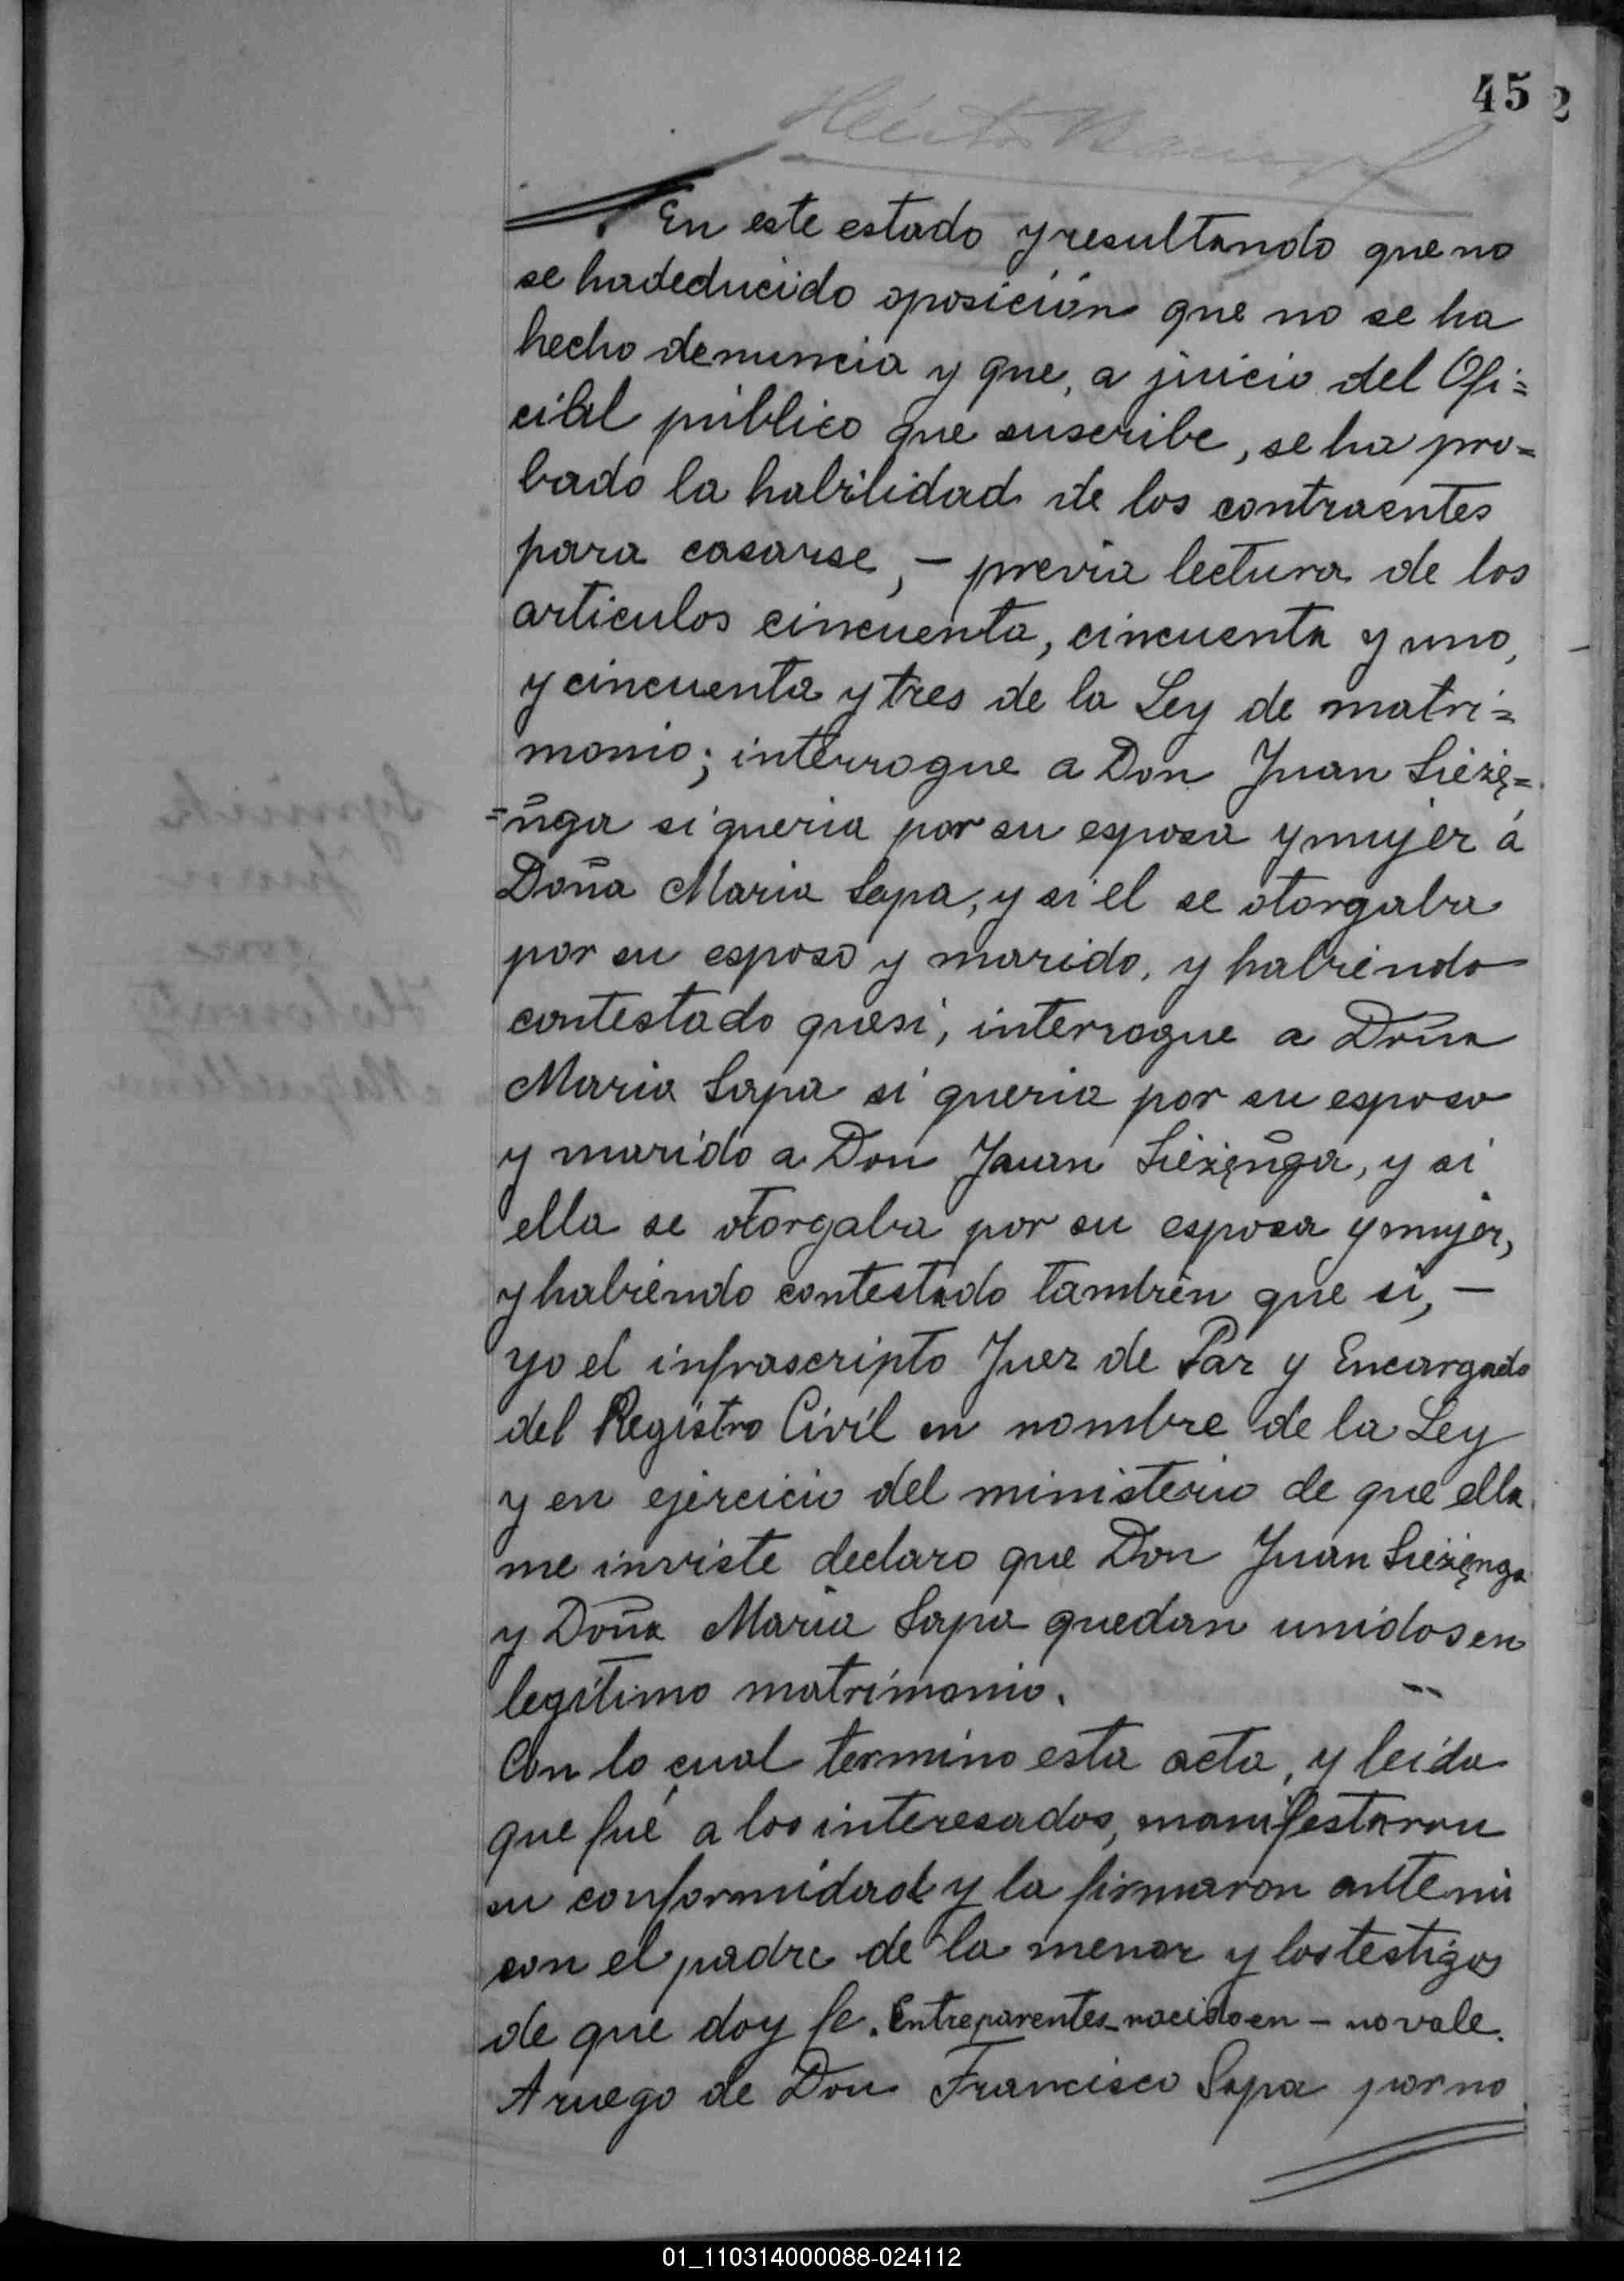 45
En este estado y resultando que no
se ha deducido oposición que no se ha
hecho denuncia y que, a juicio del Ofi=
cial público que suscribe, se ha pro=
bado la habilidad de los contraentes
para casarse, — previa lectura de los
articulos cincuenta, cincuenta y uno,
y cincuenta y tres de la Ley de matri=
monio; interrogue a Don Juan Sieżę=
=n̄ga si queria por su esposa y mujer á
Doña Maria Sapa, y si el se otorgaba
por su esposo y marido, y habiendo
contestado que si, interrogue a Doña
Maria Sapa si queria por su esposo
y marido a Don Jauan Sieżęn̄ga, y si
ella se otorgaba por su esposa y mujer,
y habiendo contestado tambien que si, —
yo el infrascripto Juez de Paz y Encargado
del Registro Civil en nombre de la Ley
y en ejercicio del ministerio de que ella
me inviste declaro que Don Juan Sieżęnga
y Doña Maria Sapa quedan unidos en
legitimo matrimonio.
Con lo cual termino esta acta, y leida
que fué a los interesados, manifestaron
su conformidad y la firmaron ante mi
con el padre de la menor y los testigos
de que doy fe. Entreparentes_nacido en – no vale.
A ruego de Don Francisco Sapa por no
01_110314000088-024112